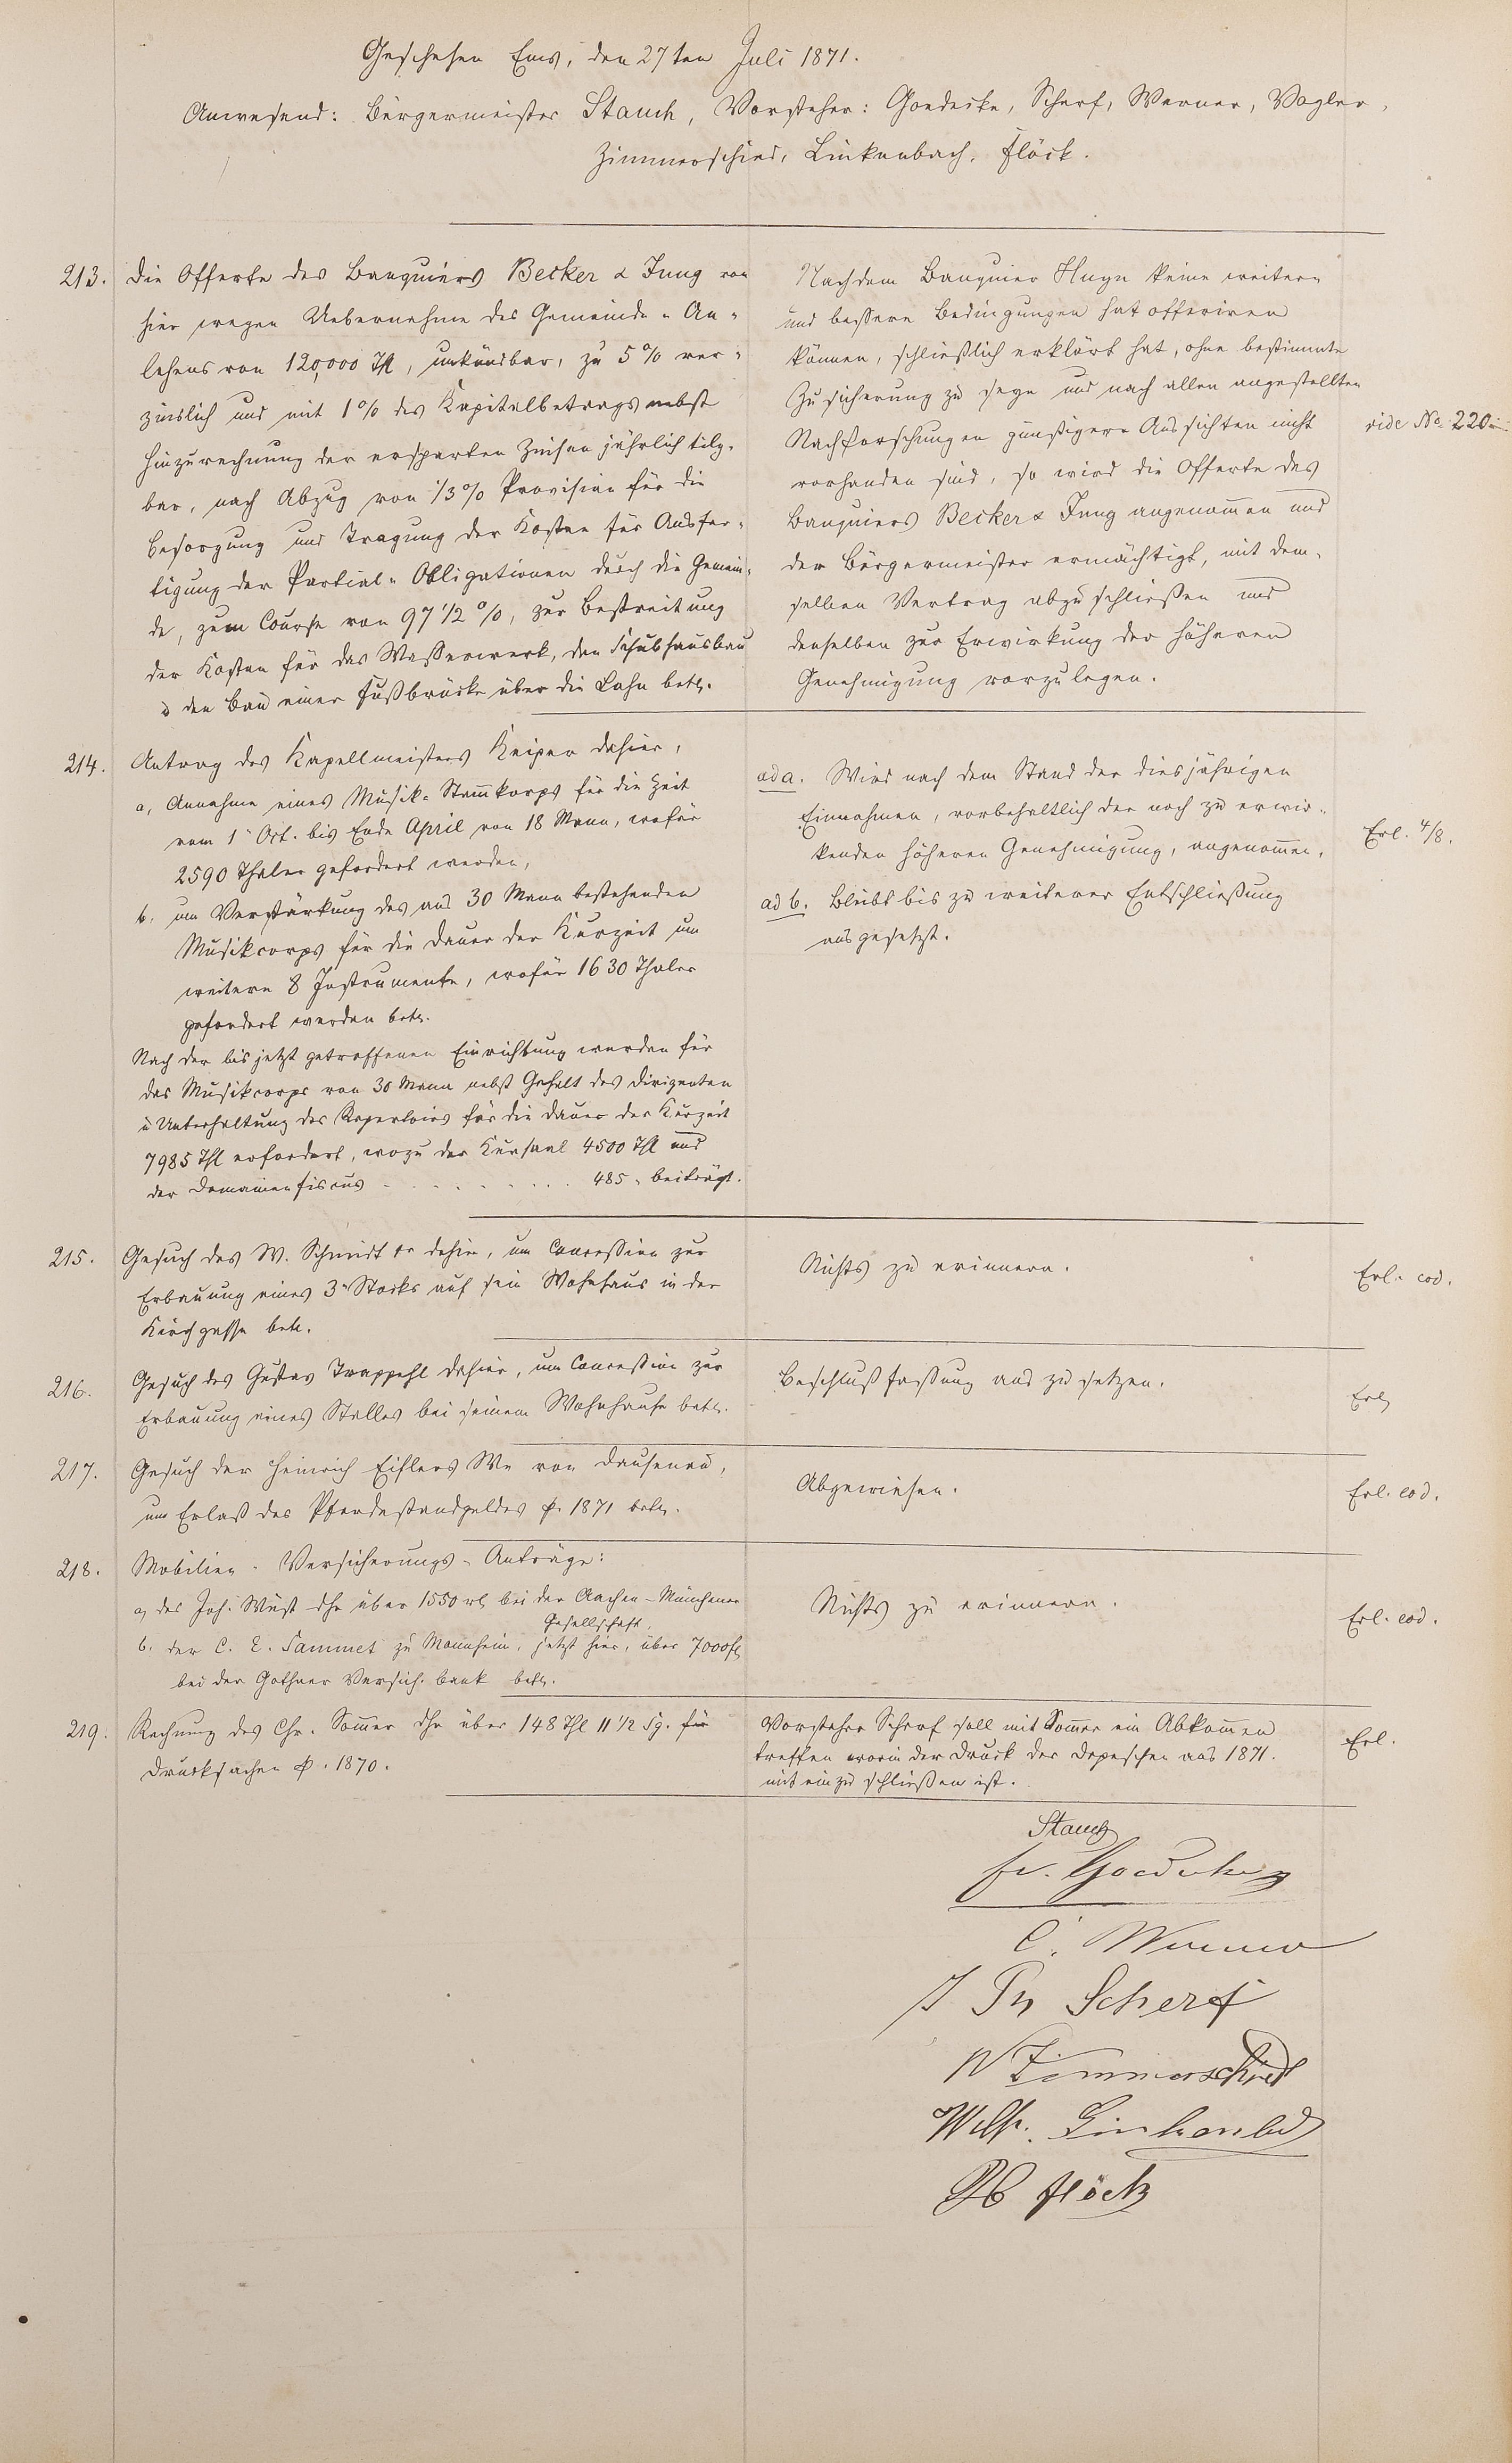 Geschehen Ems, den 27ten Juli 1871.
Anwesend: Bürgermeister Stauch, Vorsteher: Goedecke, Scherf, Werner, Vogler,
Zimmerschied, Linkenbach, Flöck.
213.
Die Offerte des Banquiers Becker & Jung von
hier wegen Uebernahme des Gemeinde-An-
lehens von 120,000 Thl, unkündbar, zu 5% ver-
zinslich und mit 1% des Kapitalbetrags nebst
Hinzurechnung der ersparten Zinsen jährlich tilg-
bar, nach Abzug von 1/3% Provision für die
Besorgung und Tragung der Kosten für Ausfer-
tigung der Partial-Obligationen durch die Gemein-
de, zum Course von 97 1/2 %, zur Bestreitung
der Kosten für das Wasserwerk, den Schulhausbau
u den Bau einer Fußbrücke über die Lahn betr.
Nachdem Banquier Hugn keine weitern
und bessere Bedingungen hat offeriren
können, schließlich erklärt hat, ohne bestimmte
Zusicherung zu seyn und nach allen angestellten
Nachforschungen günstigere Aussichten nicht
vorhanden sind, so wird die Offerte des
Banquiers Becker & Jung angenommen und
der Bürgermeister ermächtigt, mit dem-
selben Vertrag abzuschließen und
denselben zur Erwirkung der höheren
Genehmigung vorzulegen.
vide No. 220
214.
Antrag des Kapellmeisters Keiper dahier,
a, Annahme eines Musik-Stammkorps für die Zeit
vom 1n Oct. bis Ende April von 18 Mann, wofür
2590 Thaler gefordert werden,
b. um Verstärkung des aus 30 Mann bestehenden
Musikcorps für die Dauer der Kurzeit um
weitere 8 Instrumente, wofür 1630 Thaler
gefordert werden betr.
Nach der bis jetzt getroffenen Einrichtung werden für
das Musikcorps von 30 Mann nebst Gehalt des Dirigenten
u Unterhaltung des Repertoirs für die Dauer der Kurzeit
7985 Thl erfordert, wozu der Kursaal 4500 Thl und
der Domainenfiscus . . . . . . . . 485 " beiträgt.
ad a. Wird nach dem Stand der diesjährigen
Einnahmen, vorbehaltlich der noch zu erwir-
kenden höheren Genehmigung, angenommen.
ad b. Bleibt bis zu weiterer Entschließung
ausgesetzt.
Erl. 4/8.
215.
Gesuch des W. Schmidt dahier, um Concession zur
Erbauung eines 3n Stocks auf sein Wohnhaus in der
Kirchgasse betr.
Nichts zu erinnern.
Erl. eod.
216.
Gesuch des Gustav Trappehl dahier, um Concession zur
Erbauung eines Stalles bei seinem Wohnhause betr.
Beschlußfassung aus zu setzen.
Erl
217.
Gesuch der Heinrich Eiflers We von Dausenau,
um Erlaß des Pferdestandgeldes p. 1871 betr.
Abgewiesen.
Erl. eod.
218.
Mobilien-Versicherungs-Anträge:
a, des Joh. Wüst dhr über 1550 rl bei der Aachen-Münchener
Gesellschaft,
b. der C. E. Sammet zu Mannheim, jetzt hier, über 7000 fl
bei der Gothaer Versich. bank betr.
Nichts zu erinnern.
Erl. eod.
219.
Rechnung des Chr. Sommer dhr über 148 Thl 11 1/2 Sg. für
Drucksachen p. 1870.
Vorsteher Scherf soll mit Sommer ein Abkommen
treffen worin der Druck der Depeschen aus 1871.
mit einzu schließen ist.
Erl.
Stauch
Fr. Goedecke
C. Werner
J Ph Scherf
W Zimmerschied
Wilh. Linkenbach
Ph Flöck